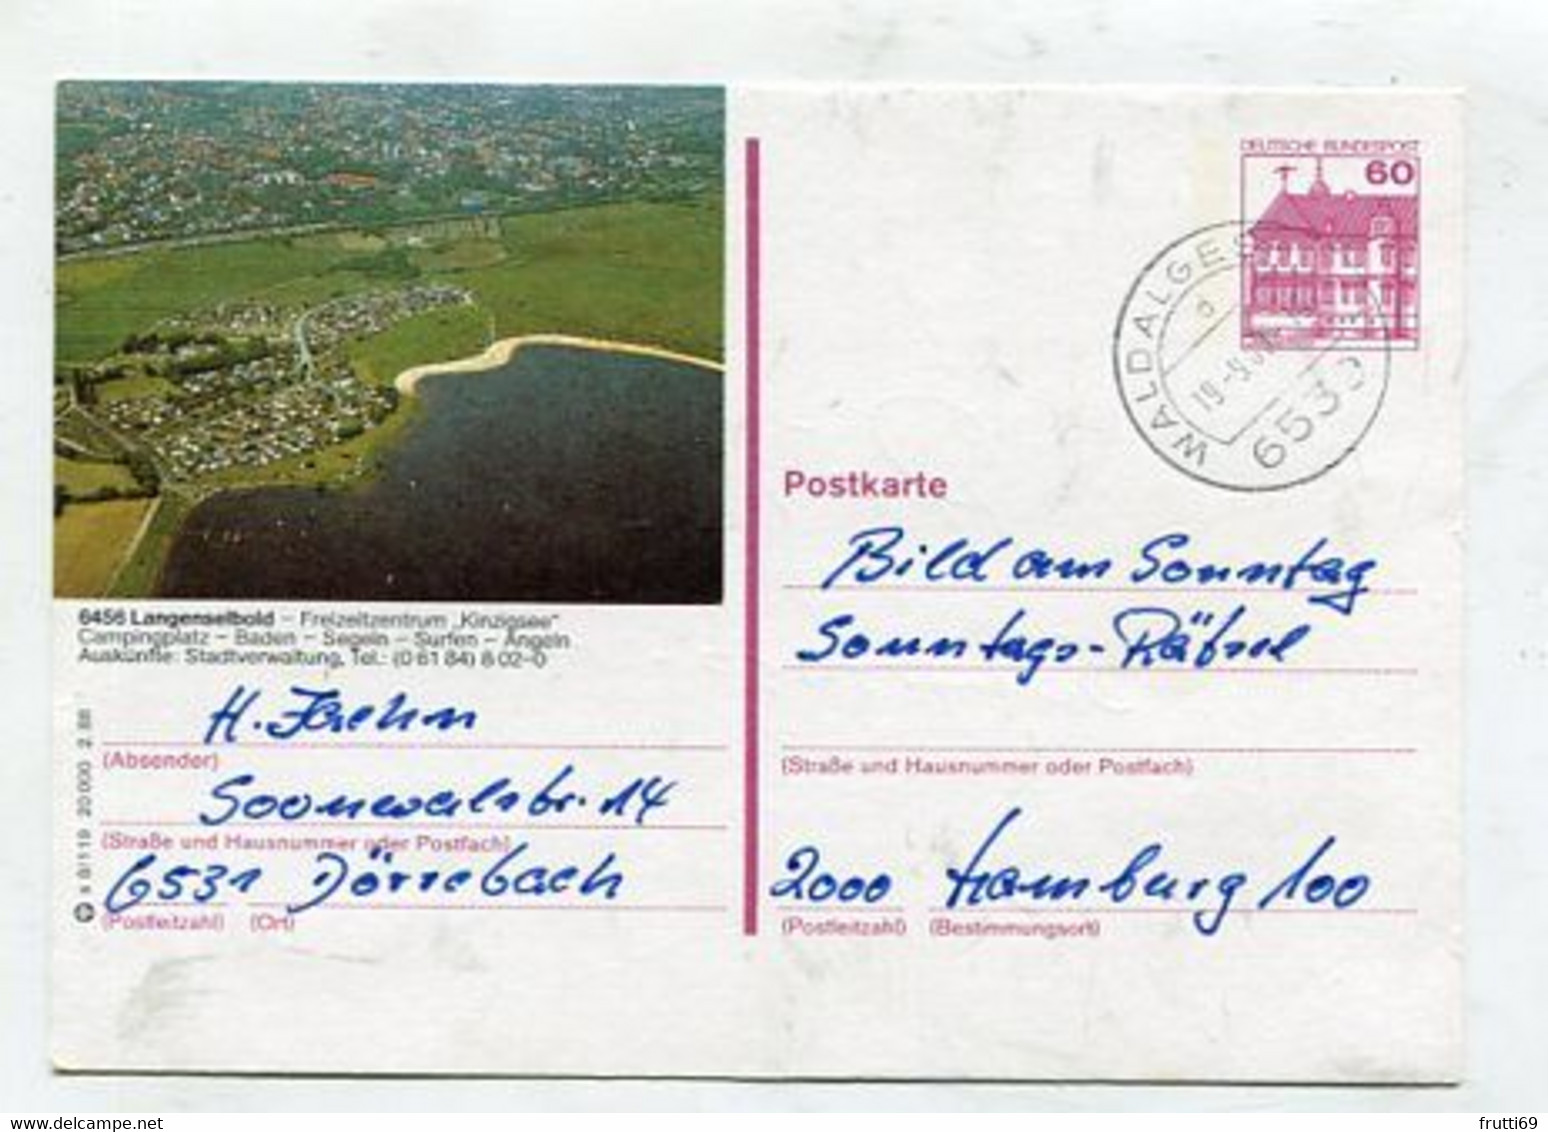 DEUTSCHE BUNDESPOST
60
WALDALGES
6535
Postkarte
Bild am Sonntag
Sonntags-Rätsel
(Straße und Hausnummer oder Postfach)
2000 Hamburg 100
(Postleitzahl) (Bestimmungsort)
6456 Langenselbold – Freizeitzentrum „Kinzigsee“
Campingplatz – Baden – Segeln – Surfen – Angeln
Auskünfte: Stadtverwaltung, Tel.: (0 61 84) 8 02-0
H. Jaehn
(Absender)
14
(Straße und Hausnummer oder Postfach)
6531 Dörrebach
(Postleitzahl) (Ort)
s 8/119 20 000 2.88
frutti69